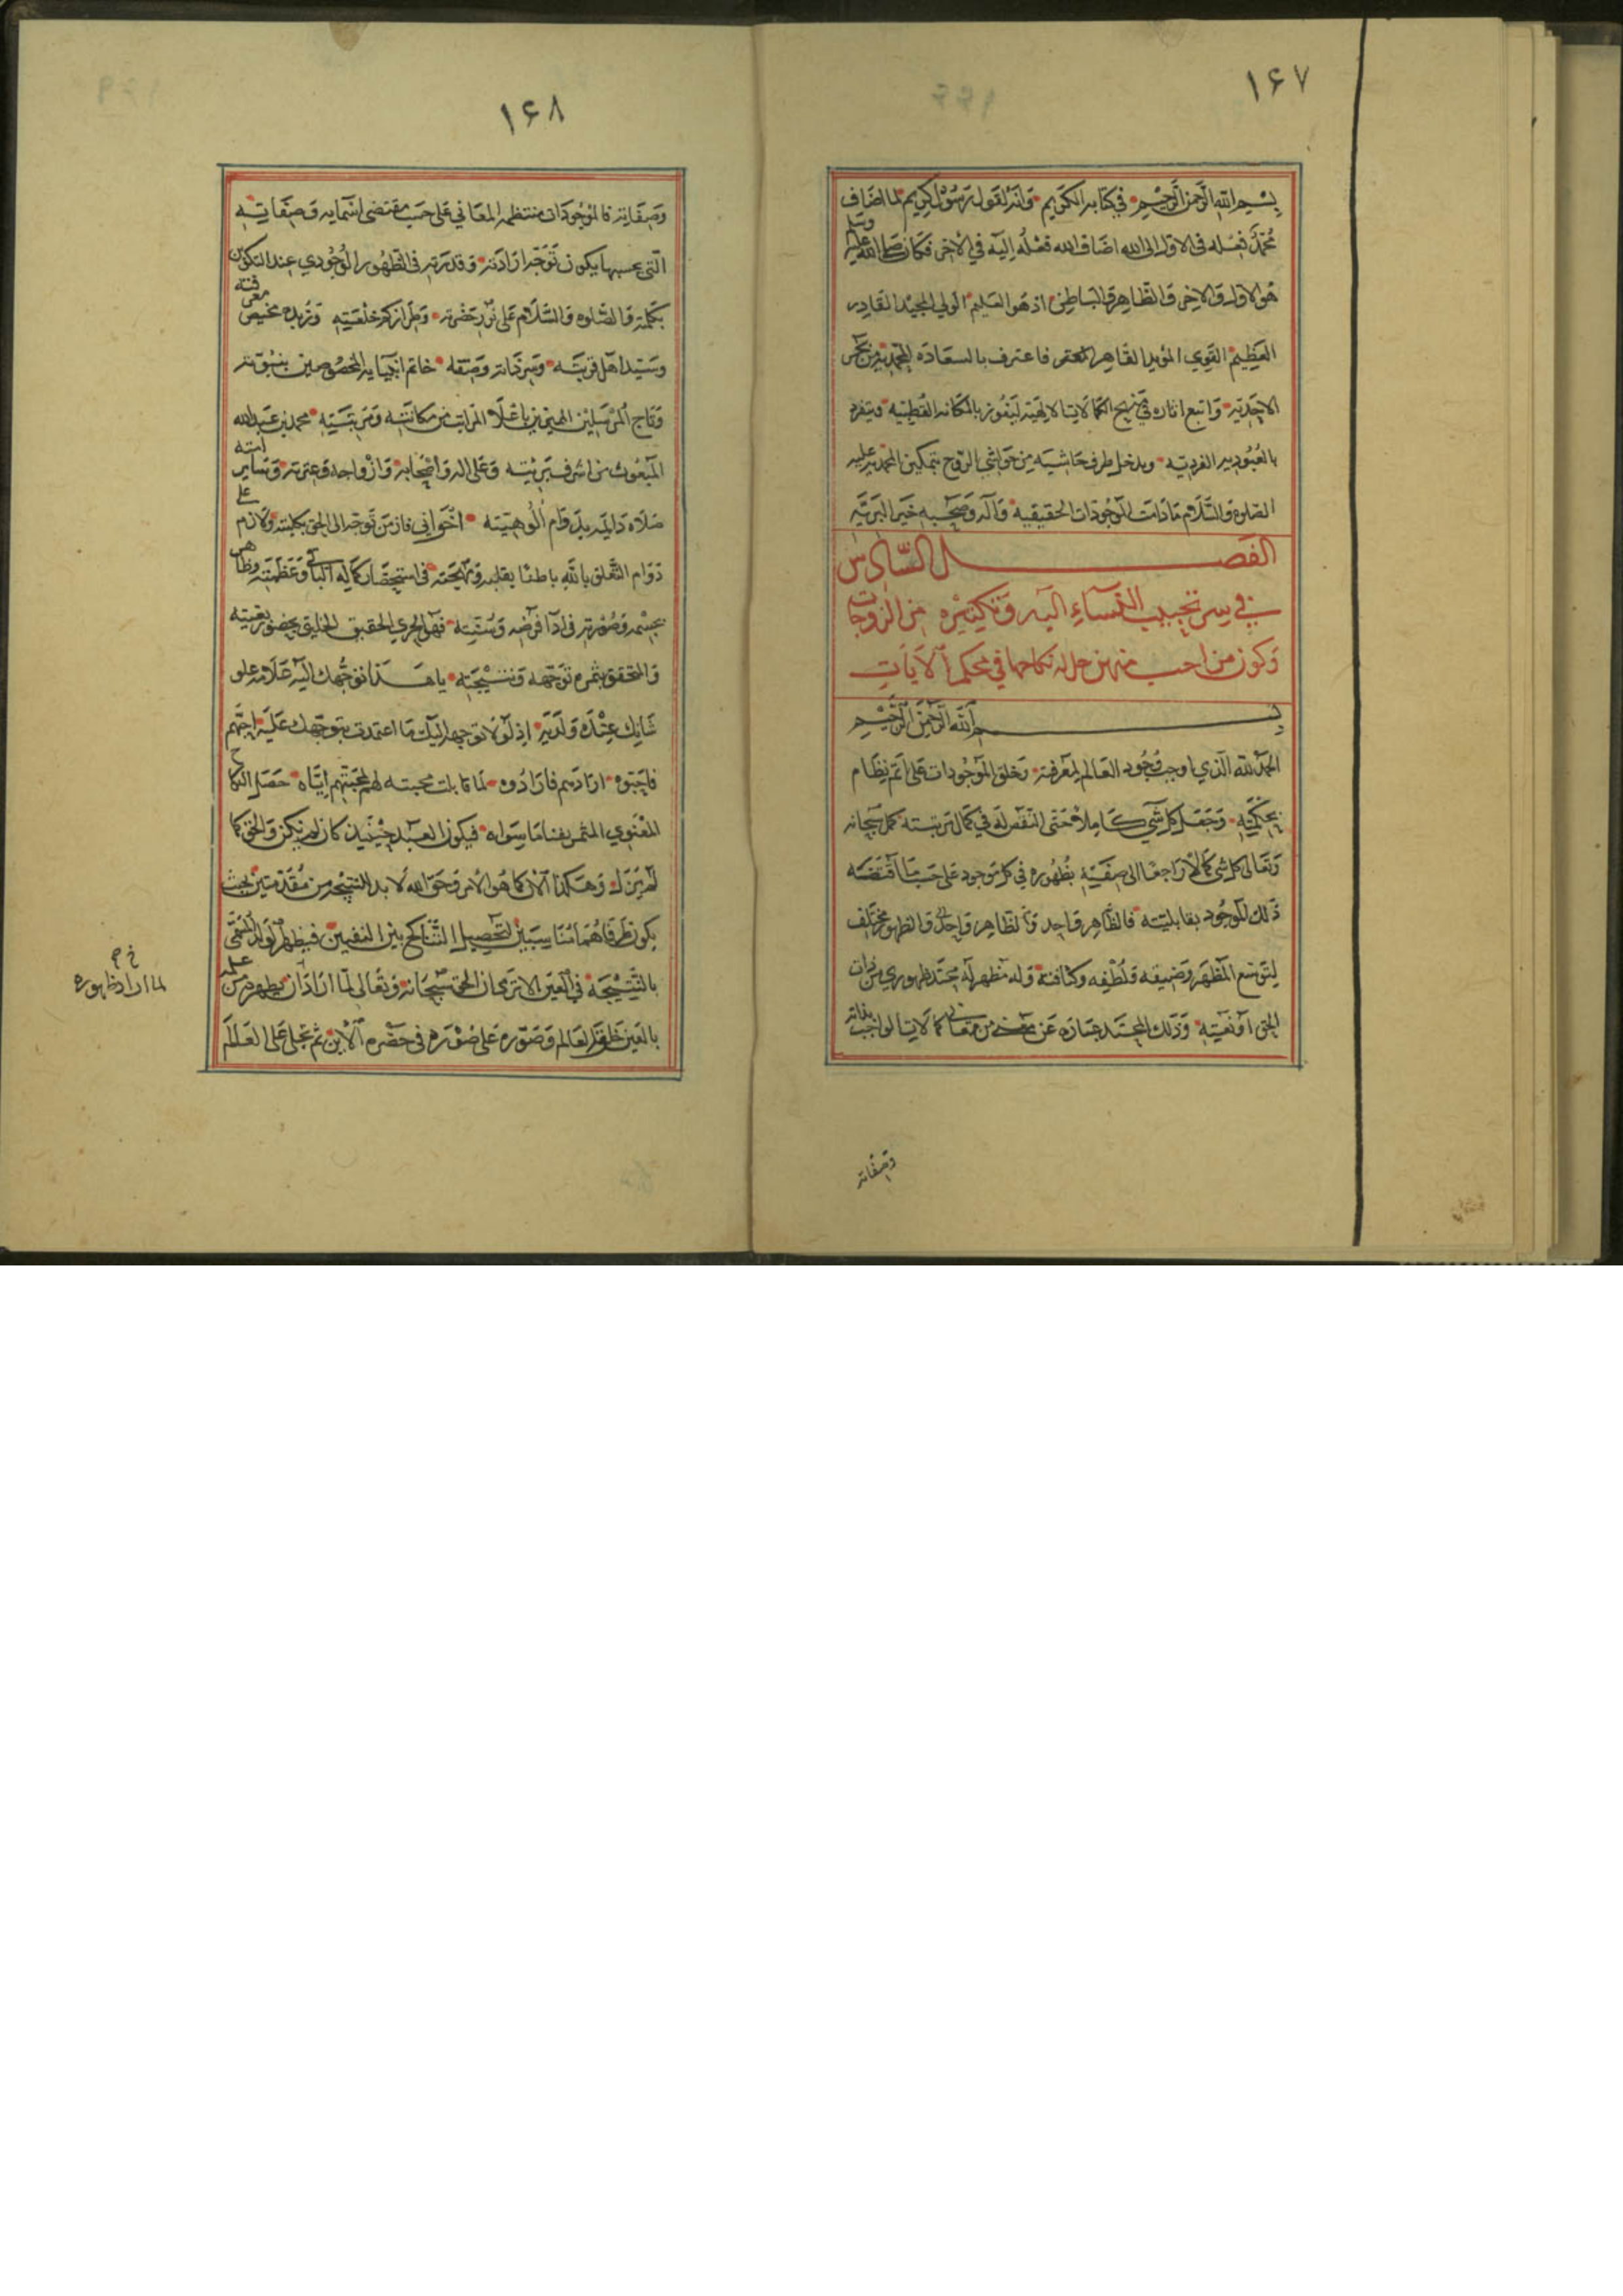 ١٦٧
بسم الله الرحمن الرحيم في كتابه الكريم وانه لقول رسول كريم لما اضاف
محمد فعله في الاول الى الله اضاف الله فعله اليه في الاخر فكان صلى الله عليه وسلم
هو الاول والاخر والظاهر والباطن اذ هو العليم الولي المجيد القادر
العظيم القوي المؤيد القاهر فاعترف بالسعادة المحمديه من
الاحمديه واتبع اثاره في الكمالات الالهيه ليفوز بالمكانه القطبيه وينفرد
بالعبوديه الفرديه ويدخل طرف حاشيه من حواشي الروح بتمكين المحمديه عليه
الصلوة والسلام مادامت الموجودات الحقيقيه وآله وصحبه خير البريه
الفصل السادس
في سر تحبيب النساء اليه وتكثيره من الزوجات
وكون من احب منهن حل له نكاحها في محكم الآيات
بسم الله الرحمن الرحيم
الحمد لله الذي اوجب وجود العالم لمعرفته وخلق الموجودات على اتم نظام
بحكمته وجعل كل شي كاملا حتى النقص له في كمال ترتبته كمل سبحانه
وتعالى كل شي كمالا راجعا الى صفته بظهوره في كل موجود على حسب ما اقتضته
ذلك الموجود بقابليته فالظاهر واحد والظاهر واحد والظهور مختلف
لتوسع المظهر وضيقه ولطفه وكثافته وله مظهر له محتد ظهوري من ذات
الحق او نعته وذلك المحتد عبارة عن معنى من معاني كمالات الواجب بذاته
وصفاته
١٦٨
وصفاته فالموجودات منتظمه المعاني على حسب مقتضى اسمايه وصفاته
التي بحسبها يكون توجه ارادته وقدرته في الظهور الوجودي عند التكوين
بكلمته والصلوه والسلام على نور حضرته وطراز كم خلعته وزبده مخيض معرفته
وسيد اهل قربته وسر ذاته وصفته خاتم انبيايه المخصوصين بنبوته
وتاج المرسلين المميزين باعلا المراتب من مكانته ومرتبته محمد بن عبدالله
المبعوث من اشرف بريته وعلى اله واصحابه وازواجه وعترته وساير امته
صلاه دايمه بدوام الوهيته اخواني فاز من توجه الى الحق بكليته ولازم على
دوام التعلق بالله باطنا بقلبه ومهجته في استحضار كماله الباقي وعظمته وظاهر
بجسمه وصورته في ادآ فرضه وسنته فهو الحري الحقيق الخليق بحضور بغيته
والتحقق بثمره توجهه ونتيجته يا هذا توجهك اليه علامه علو
شانك عنده ولديه اذ لولا توجهه اليك ما اعتمدت بتوجهك عليه احبهم
فاحبوه ارادهم فارادوه لما قابلت محبته لهم لمحبتهم اياه حصل النكاح
المعنوي المثمر بفنا ما سواه فيكون العبد حينئذ كان لم يكن والحق كما
لم يزل وهكذا الان كما هو الامر وحق الله لا بد للنتيجه من مقدمتين بحيث
يكون طرفاهما متناسبين لتحصيل التناكح بين النفيين فيظهر الولد المسمى
بالنتيجة في العين الا ترى ان الحق سبحانه وتعالى لما اراد ان يظهر من علمه
بالعين خلق العالم وصوره على صورة في حضره الاين ثم تجلى على العالم
خ م
لما اراد ظهوره